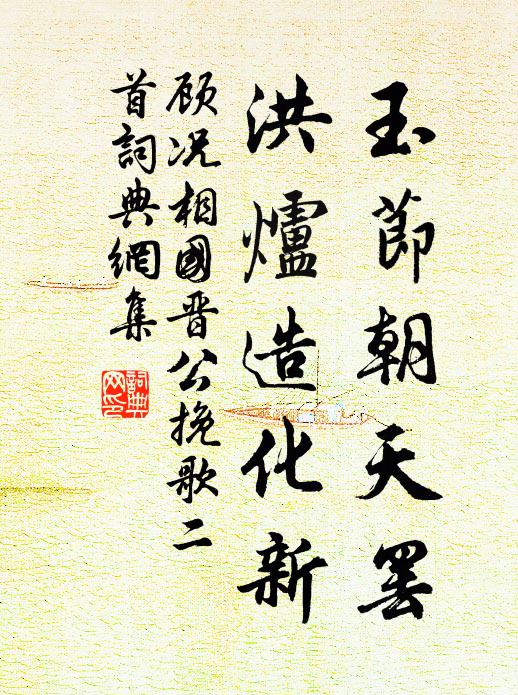 玉節朝天罢
洪爐造化新
顾况相國晋公挽歌二
首詞典網集
詞典
网印